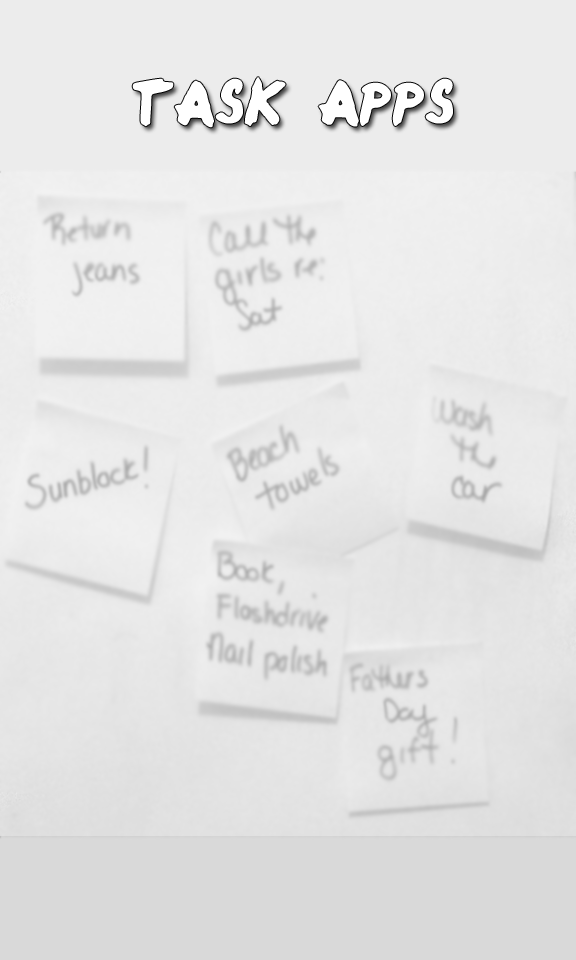 TASK APPS
Return
jeans
Call the
girls re:
Sat
Sunblock!
Beach
towels
Wash
the
car
Book,
Flashdrive
Nail polish
Fathers
Day
gift!